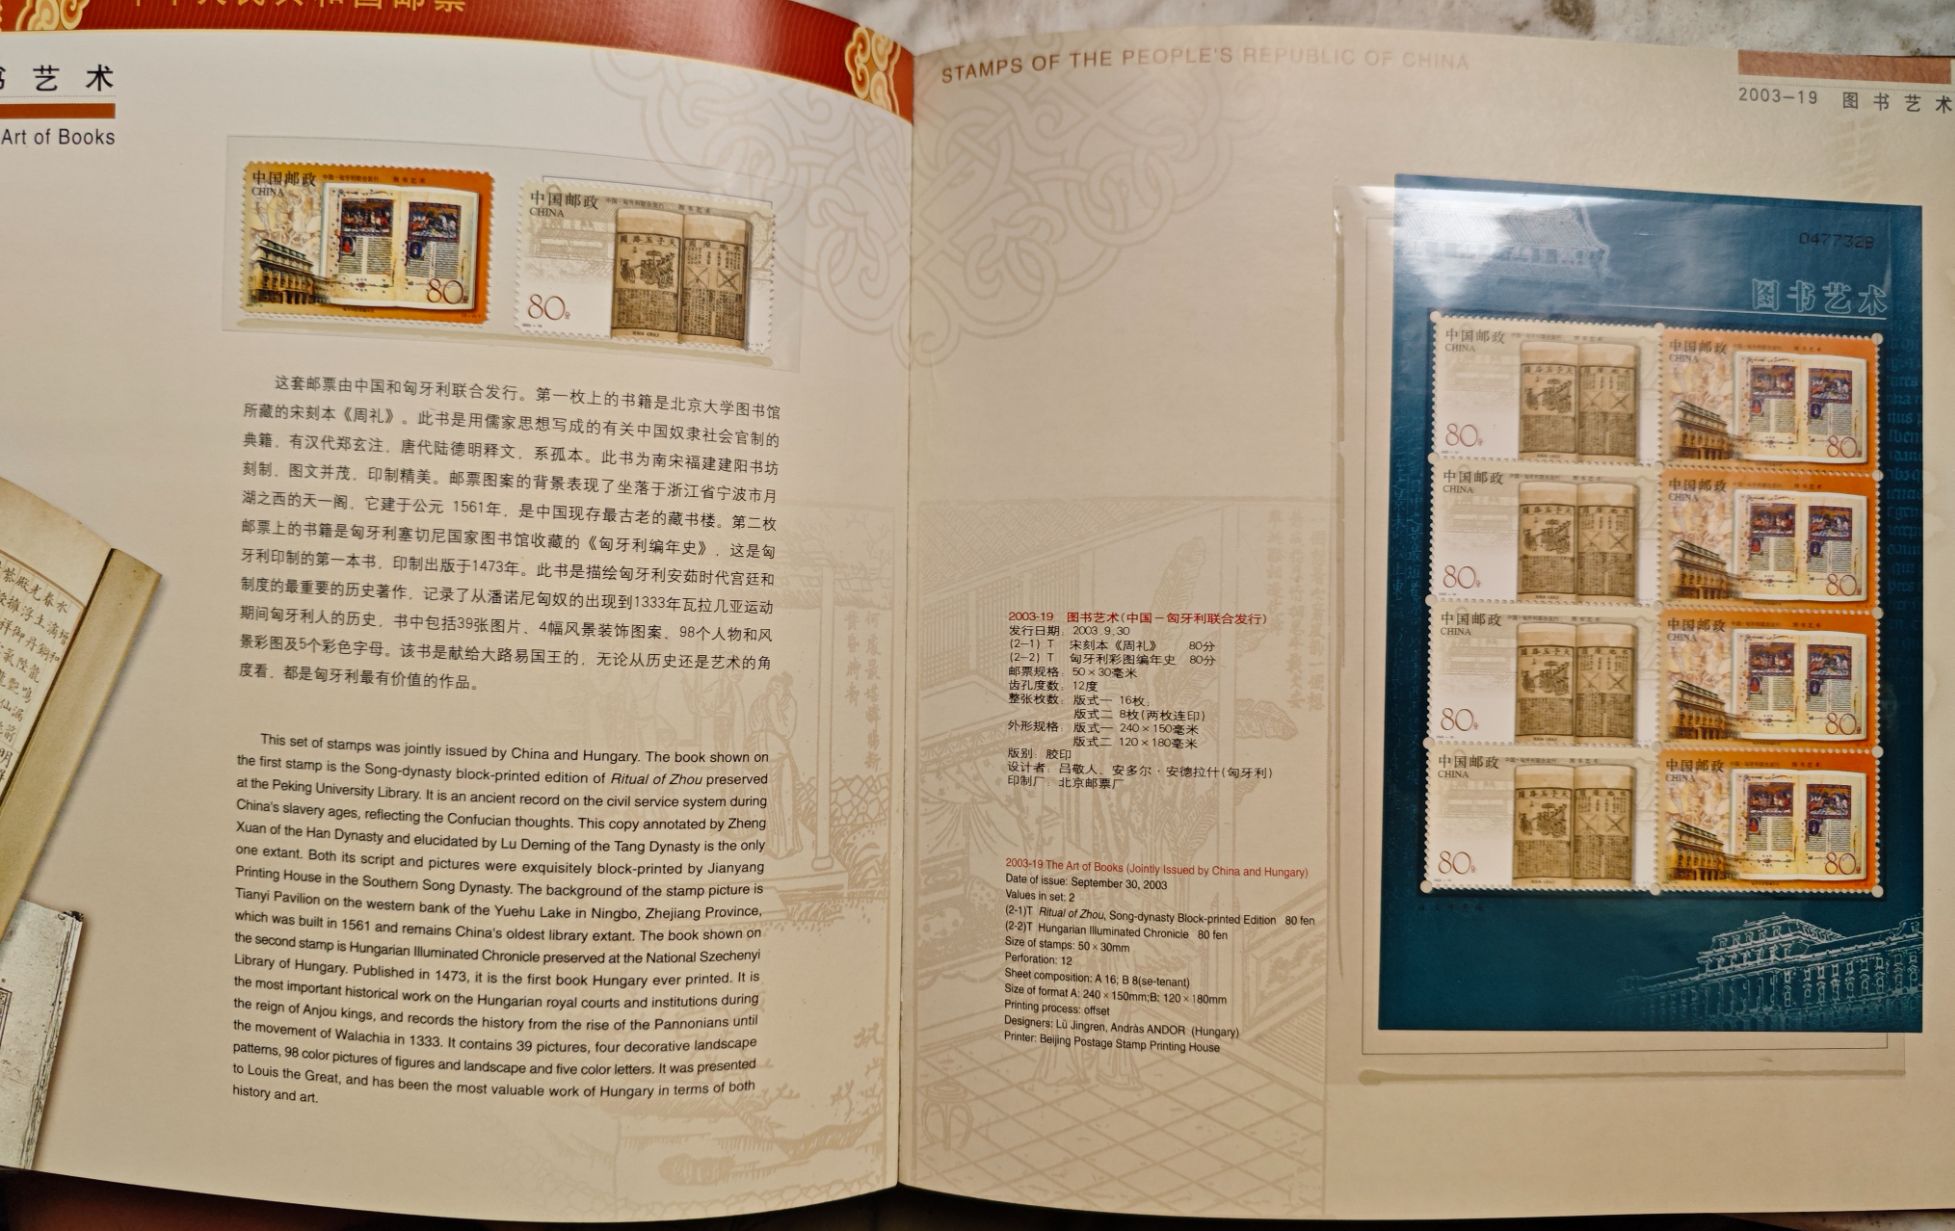 中华人民共和国邮票
书 艺 术
Art of Books
中国邮政
CHINA
80
中国邮政
CHINA
80
这套邮票由中国和匈牙利联合发行。第一枚上的书籍是北京大学图书馆
所藏的宋刻本《周礼》。此书是用儒家思想写成的有关中国奴隶社会官制的
典籍，有汉代郑玄注，唐代陆德明释文，系孤本。此书为南宋福建建阳书坊
刻制，图文并茂，印制精美。邮票图案的背景表现了坐落于浙江省宁波市月
湖之西的天一阁，它建于公元 1561年，是中国现存最古老的藏书楼。第二枚
邮票上的书籍是匈牙利塞切尼国家图书馆收藏的《匈牙利编年史》，这是匈
牙利印制的第一本书，印制出版于1473年。此书是描绘匈牙利安茹时代宫廷和
制度的最重要的历史著作，记录了从潘诺尼匈奴的出现到1333年瓦拉几亚运动
期间匈牙利人的历史，书中包括39张图片、4幅风景装饰图案、98个人物和风
景彩图及5个彩色字母。该书是献给大路易国王的，无论从历史还是艺术的角
度看，都是匈牙利最有价值的作品。
This set of stamps was jointly issued by China and Hungary. The book shown on
the first stamp is the Song-dynasty block-printed edition of Ritual of Zhou preserved
at the Peking University Library. It is an ancient record on the civil service system during
China's slavery ages, reflecting the Confucian thoughts. This copy annotated by Zheng
Xuan of the Han Dynasty and elucidated by Lu Deming of the Tang Dynasty is the only
one extant. Both its script and pictures were exquisitely block-printed by Jianyang
Printing House in the Southern Song Dynasty. The background of the stamp picture is
Tianyi Pavilion on the western bank of the Yuehu Lake in Ningbo, Zhejiang Province,
which was built in 1561 and remains China's oldest library extant. The book shown on
the second stamp is Hungarian Illuminated Chronicle preserved at the National Szechenyi
Library of Hungary. Published in 1473, it is the first book Hungary ever printed. It is
the most important historical work on the Hungarian royal courts and institutions during
the reign of Anjou kings, and records the history from the rise of the Pannonians until
the movement of Walachia in 1333. It contains 39 pictures, four decorative landscape
patterns, 98 color pictures of figures and landscape and five color letters. It was presented
to Louis the Great, and has been the most valuable work of Hungary in terms of both
history and art.
STAMPS OF THE PEOPLE'S REPUBLIC OF CHINA
2003-19 图 书 艺 术
2003-19 图书艺术(中国－匈牙利联合发行)
发行日期：2003.9.30
(2-1) T 宋刻本《周礼》 80分
(2-2) T 匈牙利彩图编年史 80分
邮票规格：50×30毫米
齿孔度数：12度
整张枚数：版式一 16枚，
版式二 8枚(两枚连印)
外形规格：版式一 240×150毫米
版式二 120×180毫米
版别：胶印
设计者：吕敬人、安多尔·安德拉什(匈牙利)
印制厂：北京邮票厂
2003-19 The Art of Books (Jointly Issued by China and Hungary)
Date of issue: September 30, 2003
Values in set: 2
(2-1)T Ritual of Zhou, Song-dynasty Block-printed Edition 80 fen
(2-2)T Hungarian Illuminated Chronicle 80 fen
Size of stamps: 50×30mm
Perforation: 12
Sheet composition: A 16; B 8(se-tenant)
Size of format A: 240×150mm;B: 120×180mm
Printing process: offset
Designers: Lü Jingren, Andràs ANDOR (Hungary)
Printer: Beijing Postage Stamp Printing House
0477328
图书艺术
中国邮政
CHINA
80
中国邮政
CHINA
80
中国邮政
CHINA
80
中国邮政
CHINA
80
中国邮政
CHINA
80
中国邮政
CHINA
80
中国邮政
CHINA
80
中国邮政
CHINA
80